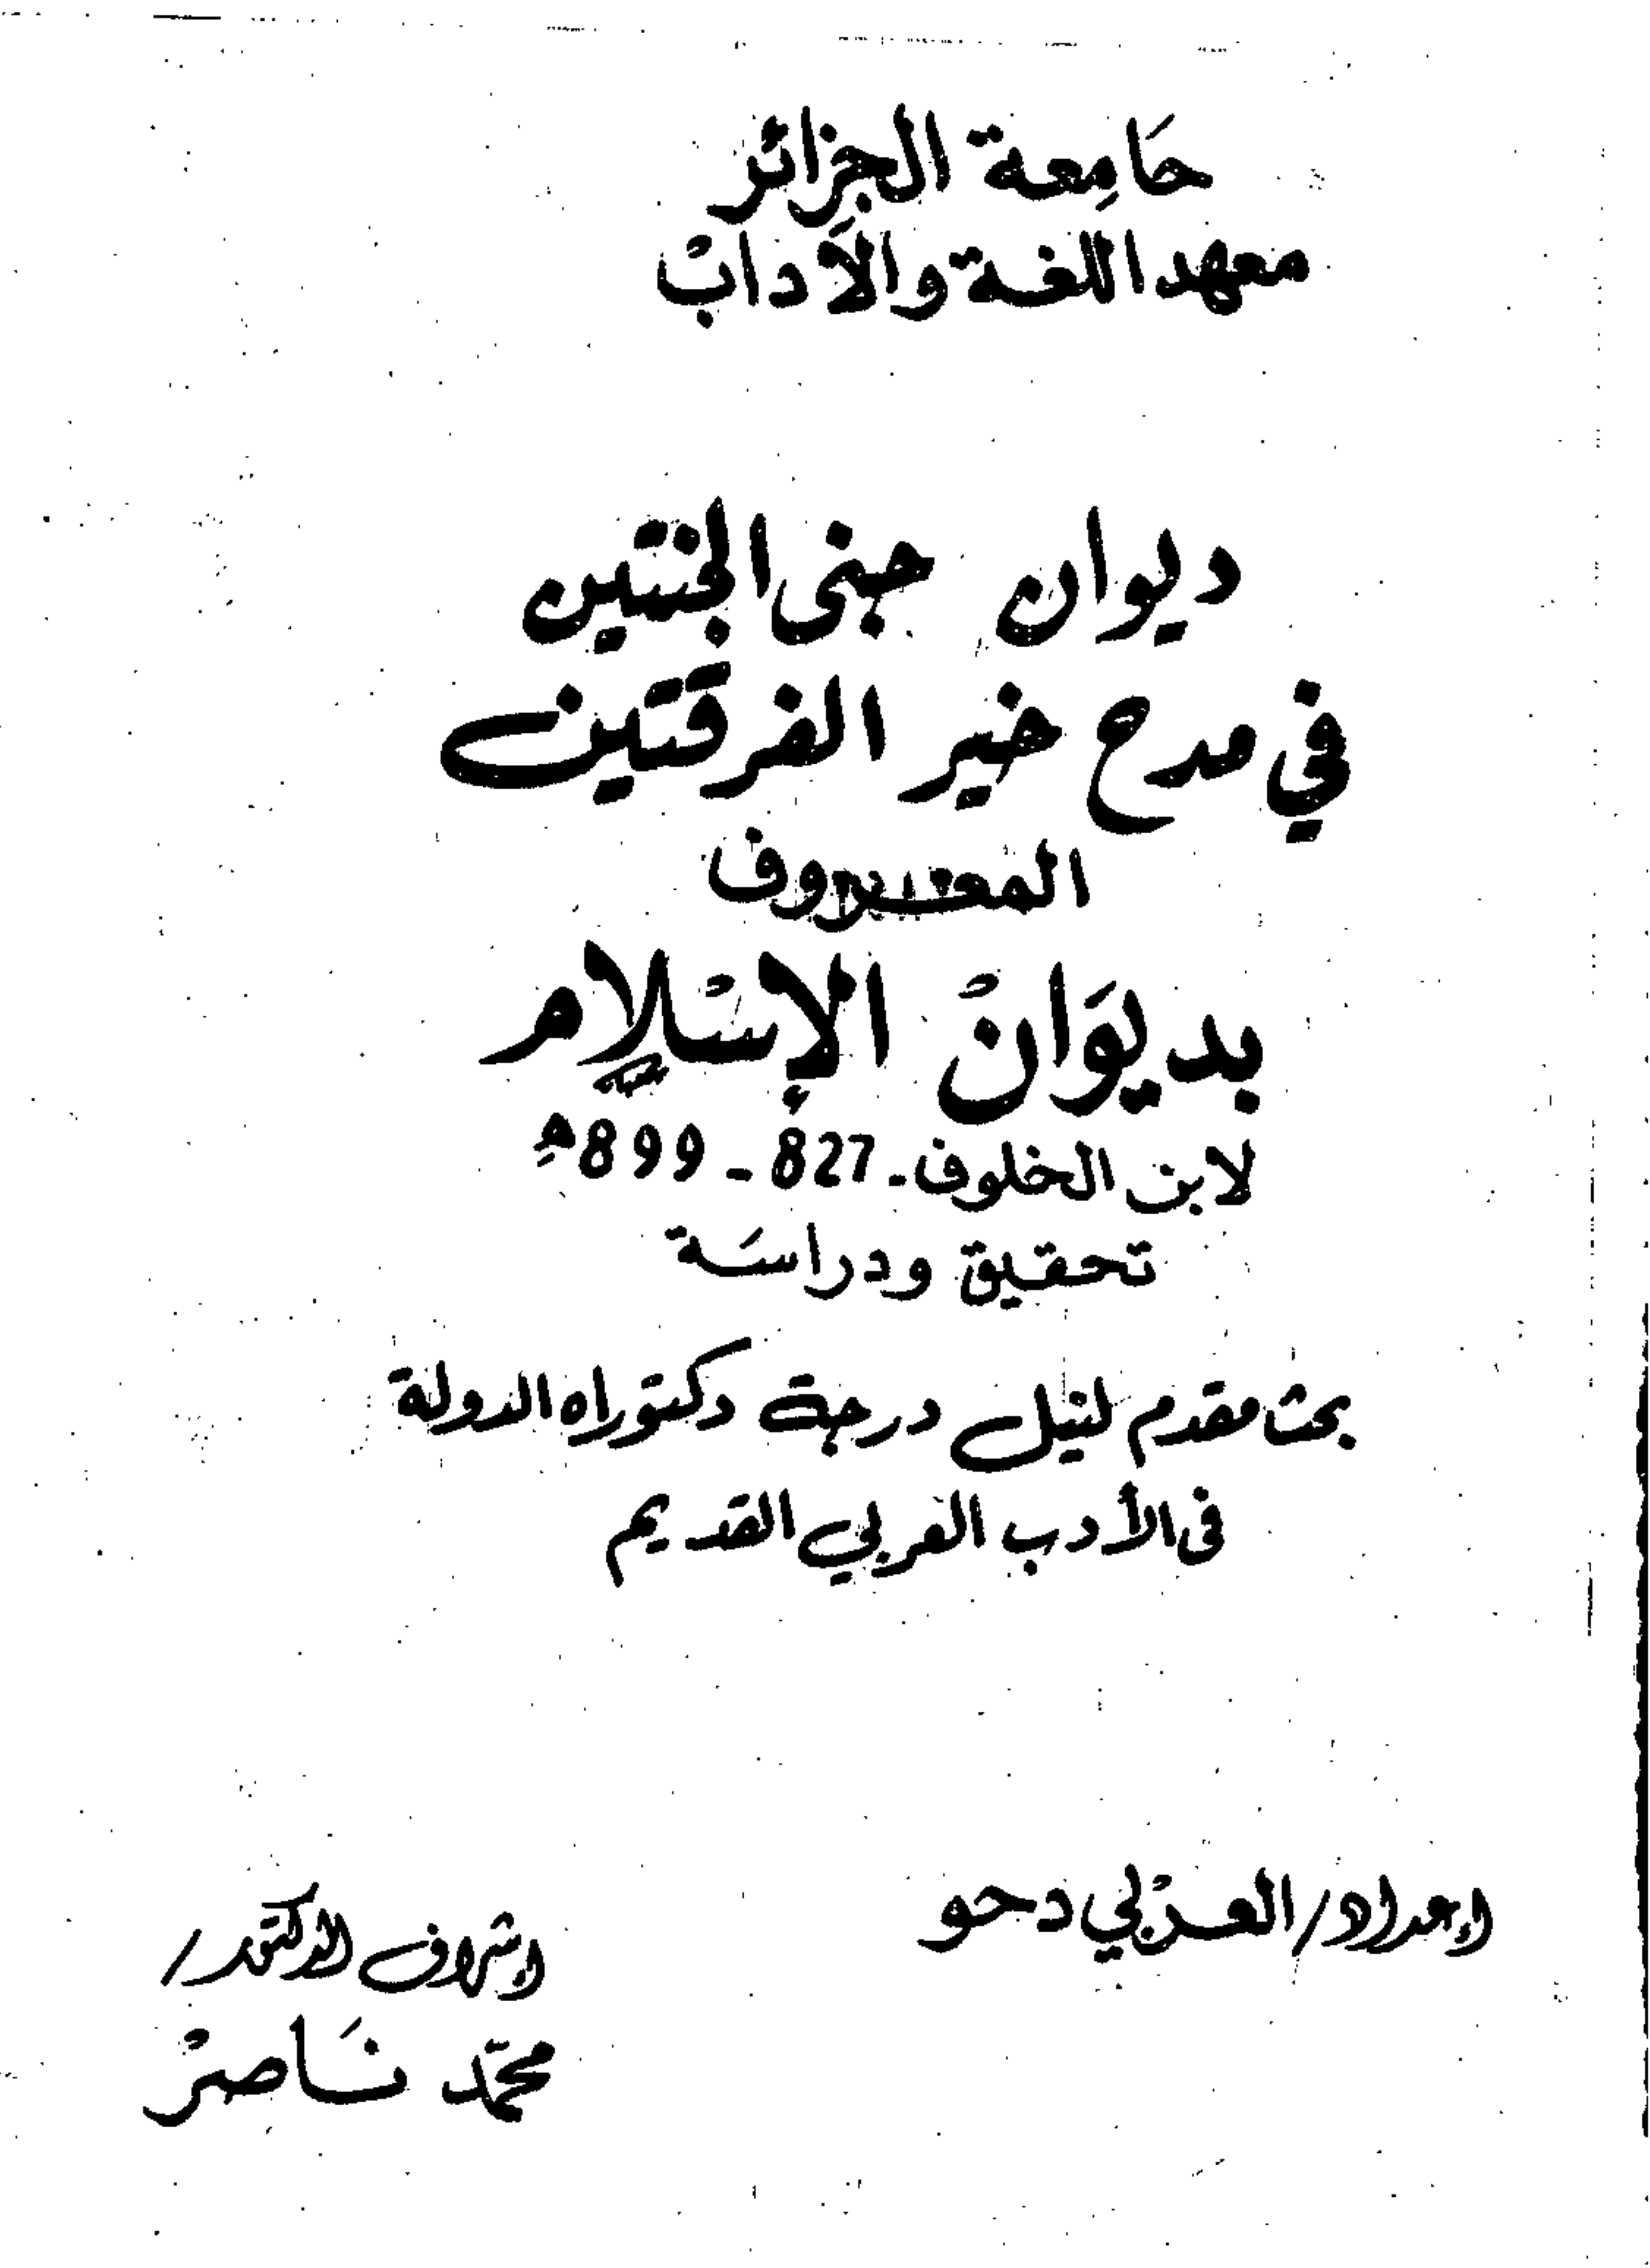 جَامِعة الجزائر
معهد اللغة والآدابْ
ديوان جنى الجنتين
في مدح خير الفرقتين
المعروف
بديوَانْ الإسْلام
لابن الخلوف - 827 - 899هـ
تحقيق ودراسَة
بحث مقدم لنيل درجة دكتوراه الدولة
فى الأدب العربي القديم
إعداد/ العرْبي دحو
إشراف الدكتور/
محمّد نَاصرْ